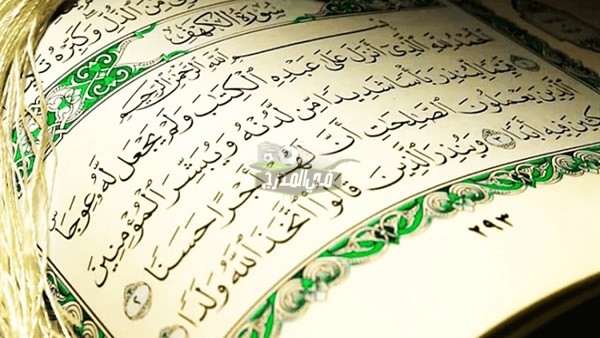 مِّنَ ٱلذُّلِّ وَكَبِّرْهُ
سُورَةُ الكَهْفِ
بِسْمِ ٱللَّهِ ٱلرَّحْمَٰنِ ٱلرَّحِيمِ
ٱلْحَمْدُ لِلَّهِ ٱلَّذِىٓ أَنزَلَ عَلَىٰ عَبْدِهِ ٱلْكِتَٰبَ وَلَمْ يَجْعَل لَّهُۥ عِوَجَاۜ
قَيِّمًا لِّيُنذِرَ بَأْسًا شَدِيدًا مِّن لَّدُنْهُ وَيُبَشِّرَ ٱلْمُؤْمِنِينَ
ٱلَّذِينَ يَعْمَلُونَ ٱلصَّٰلِحَٰتِ أَنَّ لَهُمْ أَجْرًا حَسَنًا ٢
فِيهِ أَبَدًا ٣ وَيُنذِرَ ٱلَّذِينَ قَالُوا۟ ٱتَّخَذَ ٱللَّهُ وَلَدًا
٢٩٣
في المدرج